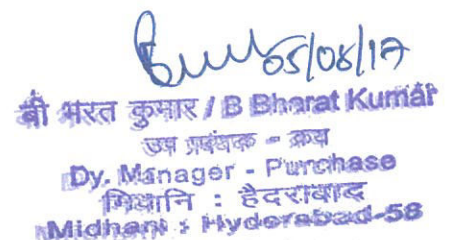 05/08/17
बी भरत कुमार / B Bharat Kumar
उप प्रबंधक - क्रय
Dy. Manager - Purchase
मिधानि : हैदराबाद
Midhani : Hyderabad-58